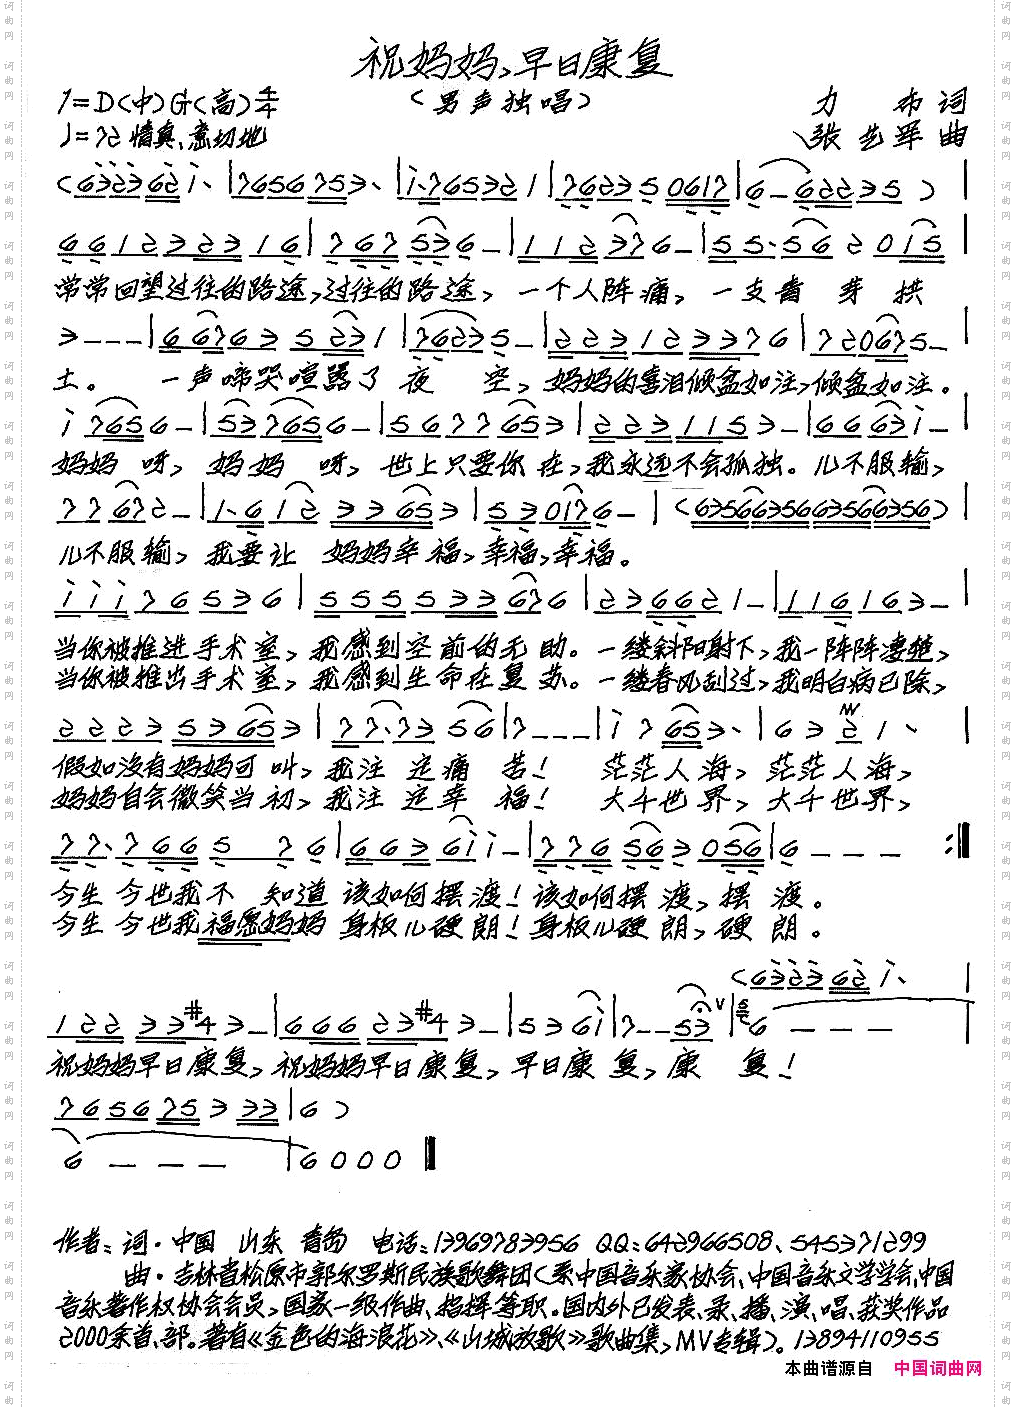 祝妈妈、早日康复
1=D(中)G(高)4/4
(男声独唱)
力布词
♩=72 情真、意切地
张艺军曲
(63236̲2̲i· |76567 53· |i·765321 |76235 0617|6-62235)
66123231 6|767536-|1123 76-|55·56 2015|
常常回望过往的路途,过往的路途,一个人阵痛,一支青芽拱
3---|66763 5231|76235-|22312 3376|72 0675-|
土。 一声啼哭喧嚣了夜空,妈妈的喜泪倾盆如注,倾盆如注。
i 7656-|537656-|5677653|2231153-|6663i-|
妈妈呀,妈妈呀,世上只要你在,我永远不会孤独。儿不服输,
77672-|1·612 33653|530176-|(6356635663566356)|
儿不服输,我要让妈妈幸福,幸福,幸福。
iii76536|55553367 6|2366 21-|116163-|
当你被推进手术室,我感到空前的无助。一缕斜阳射下,我一阵阵凄楚,
当你被推出手术室,我感到生命在复苏。一缕春风刮过,我明白病已除,
2223 53653|77·3 56|7---|i7653·|63 21·|
假如没有妈妈可叫,我注定痛苦! 茫茫人海,茫茫人海,
妈妈自会微笑当初,我注定幸福! 大千世界,大千世界,
77·7665 76|6636ii-|776563 056|6---:‖
今生今世我不知道该如何摆渡!该如何摆渡,摆渡。
今生今世我福愿妈妈身板儿硬朗!身板儿硬朗,硬朗。
(632362i·
122 33#43-|66623#43-|536i|7--53|6---
祝妈妈早日康复,祝妈妈早日康复,早日康复,康复!
7656753 33|6)
6---|6000‖
作者:词·中国 山东 青岛 电话:13969783956 QQ:642966508、545371299
曲·吉林省松原市郭尔罗斯民族歌舞团(系中国音乐家协会、中国音乐文学学会、中国
音乐著作权协会会员,国家一级作曲、指挥等职。国内外已发表、录、播、演、唱、获奖作品
2000余首、部。著有《金色的海浪花》、《山城放歌》歌曲集,MV专辑)。13894110955
本曲谱源自 中国词曲网